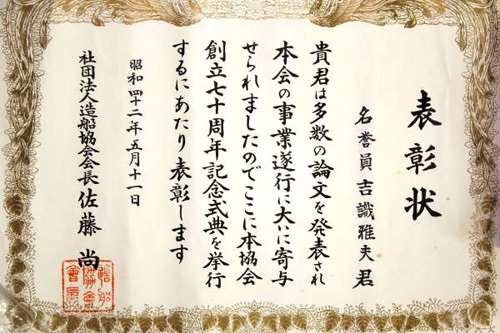 表彰状
名誉員吉識雅夫君
貴君は多数の論文を発表され
本会の事業遂行に大いに寄与
せられましたのでここに本協会
創立七十周年記念式典を挙行
するにあたり表彰します
昭和四十二年五月十一日
社団法人造船協会会長佐藤尚
造船
協会
會長